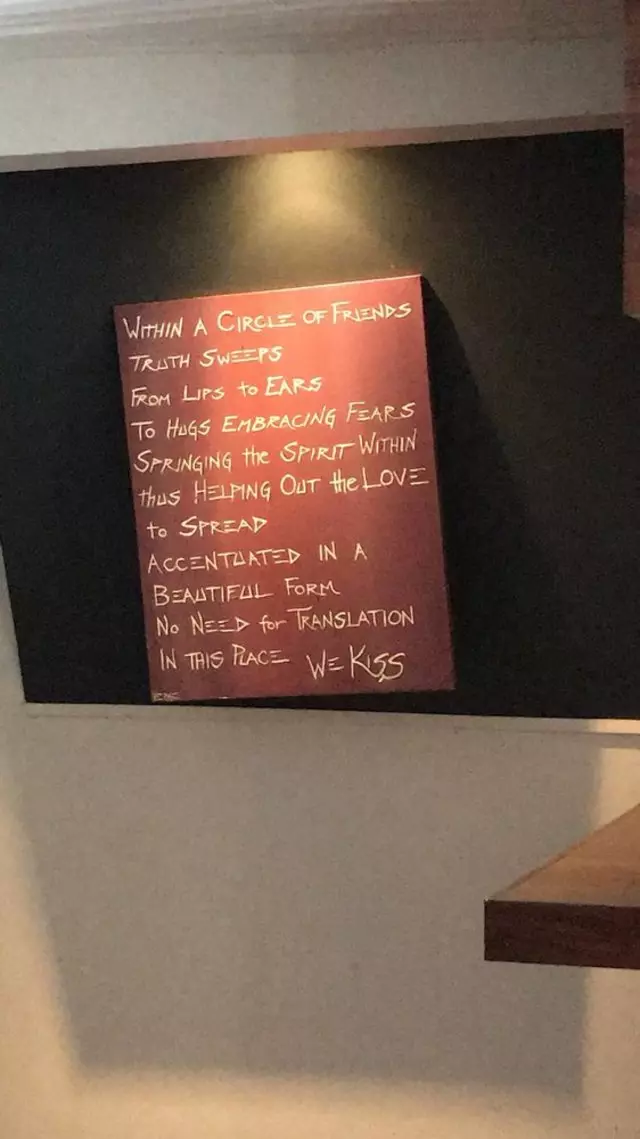 WITHIN A CIRCLE OF FRIENDS
TRUTH SWEEPS
FROM LIPS to EARS
TO HUGS EMBRACING FEARS
SPRINGING the SPIRIT WITHIN
thus HELPING OUT the LOVE
to SPREAD
ACCENTUATED IN A
BEAUTIFUL FORM
NO NEED for TRANSLATION
IN THIS PLACE WE KISS